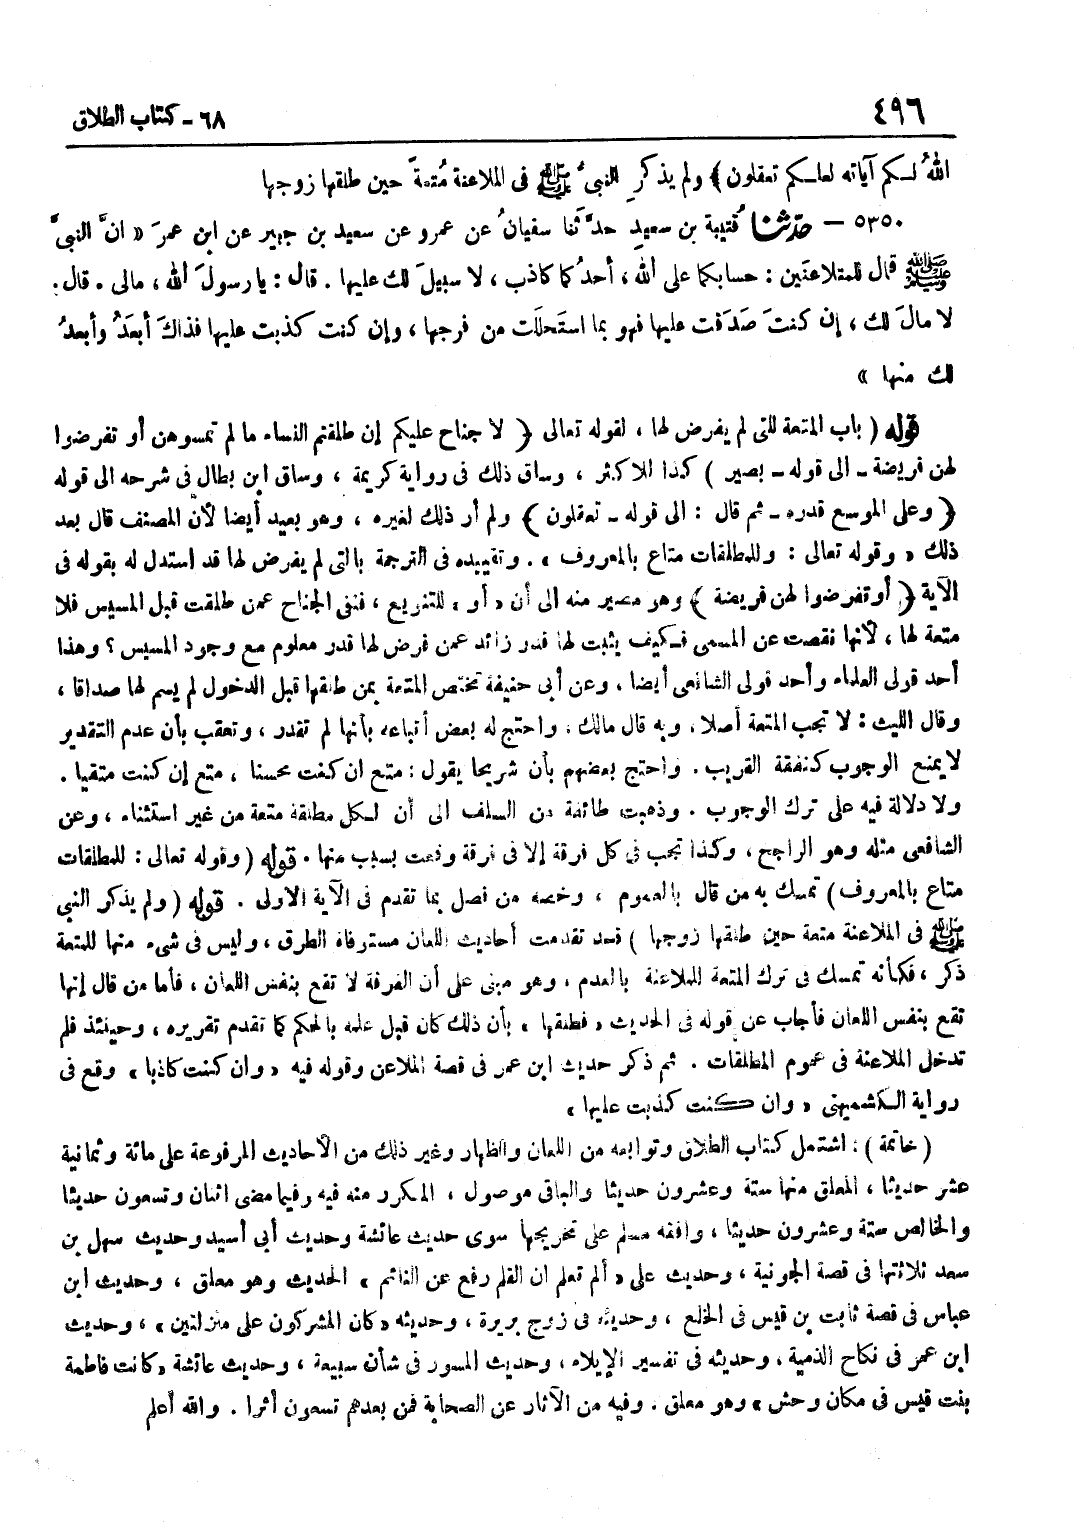 ٤٩٦
٦٨ - كتاب الطلاق
اللهُ لكم آياته لعلكم تعقلون﴾ ولم يذكرِ النبىُّ ﷺ فى الملاعنة مُتعةً حين طلقها زوجها
٥٣٥٠ – حدّثنا قُتيبة بن سعيدٍ حدَّثنا سفيانُ عن عمرو عن سعيد بن جبير عن ابن عمرَ « انَّ النبىَّ
ﷺ قال للمتلاعنَين : حسابكما على الله ، أحدُكما كاذب ، لا سبيلَ لك عليها . قال : يا رسولَ الله ، مالى . قال :
لا مالَ لك ، إن كنتَ صَدَقت عليها فهو بما استَحلَلت من فرجها ، وإن كنت كذبت عليها فذاكَ أبعَدُ وأبعدُ
لك منها »
قوله ( باب المتعة للتى لم يفرض لها ، لقوله تعالى ﴿ لا جناح عليكم إن طلقتم النساء ما لم تمسوهن أو تفرضوا
لهن فريضة ـ الى قوله ـ بصير ) كذا للاكثر ، وساق ذلك فى رواية كريمة ، وساق ابن بطال فى شرحه الى قوله
﴿ وعلى الموسع قدره ـ ثم قال : الى قوله ـ تعقلون ﴾ ولم أر ذلك لغيره ، وهو بعيد أيضا لأن المصنف قال بعد
ذلك « وقوله تعالى : وللمطلقات متاع بالمعروف » . وتقييده فى الترجمة بالتى لم يفرض لها قد استدل له بقوله فى
الآية ﴿ أو تفرضوا لهن فريضة ﴾ وهو مصير منه الى أن « أو » للتنويع ، فنفى الجناح عمن طلقت قبل المسيس فلا
متعة لها ، لأنها نقصت عن المسمى فكيف يثبت لها قدر زائد عمن فرض لها قدر معلوم مع وجود المسيس ؟ وهذا
أحد قولى العلماء وأحد قولى الشافعى أيضا ، وعن أبى حنيفة تختص المتعة بمن طلقها قبل الدخول لم يسم لها صداقا ،
وقال الليث : لا تجب المتعة أصلا ، وبه قال مالك ، واحتج له بعض أتباعه بأنها لم تقدر ، وتعقب بأن عدم التقدير
لا يمنع الوجوب كنفقة القريب . واحتج بعضهم بأن شريحا يقول : متع ان كنت محسنا ، متع إن كنت متقيا .
ولا دلالة فيه على ترك الوجوب . وذهبت طائفة من السلف الى أن لكل مطلقة متعة من غير استثناء ، وعن
الشافعى مثله وهو الراجح ، وكذا تجب فى كل فرقة إلا فى فرقة وقعت بسبب منها . قوله ( وقوله تعالى : للمطلقات
متاع بالمعروف ) تمسك به من قال بالعموم ، وخصه من فصل بما تقدم فى الآية الاولى . قوله ( ولم يذكر النبى
ﷺ فى الملاعنة متعة حين طلقها زوجها ) قد تقدمت أحاديث اللعان مستوفاة الطرق ، وليس فى شىء منها للمتعة
ذكر ، فكأنه تمسك فى ترك المتعة للملاعنة بالعدم ، وهو مبنى على أن الفرقة لا تقع بنفس اللعان ، فأما من قال إنها
تقع بنفس اللعان فأجاب عن قوله فى الحديث « فطلقها » بأن ذلك كان قبل علمه بالحكم كما تقدم تقريره ، وحينئذ فلم
تدخل الملاعنة فى عموم المطلقات . ثم ذكر حديث ابن عمر فى قصة الملاعن وقوله فيه « وان كنت كاذبا » وقع فى
رواية الكشميهنى « وان كنت كذبت عليها »
( خاتمة ) : اشتمل كتاب الطلاق وتوابعه من اللعان والظهار وغير ذلك من الأحاديث المرفوعة على مائة وثمانية
عشر حديثا ، المعلق منها ستة وعشرون حديثا والباقى موصول ، المكرر منه فيه وفيما مضى اثنان وتسعون حديثا
والخالص ستة وعشرون حديثا ، وافقه مسلم على تخريجها سوى حديث عائشة وحديث أبى أسيد وحديث سهل بن
سعد ثلاثتها فى قصة الجونية ، وحديث على « ألم تعلم ان القلم رفع عن النائم » الحديث وهو معلق ، وحديث ابن
عباس فى قصة ثابت بن قيس فى الخلع ، وحديثه فى زوج بريرة ، وحديثه « كان المشركون على منزلتين » ، وحديث
ابن عمر فى نكاح الذمية ، وحديثه فى تفسير الإيلاء ، وحديث المسور فى شأن سبيعة ، وحديث عائشة « كانت فاطمة
بنت قيس فى مكان وحش » وهو معلق . وفيه من الآثار عن الصحابة فمن بعدهم تسعون أثرا . والله أعلم